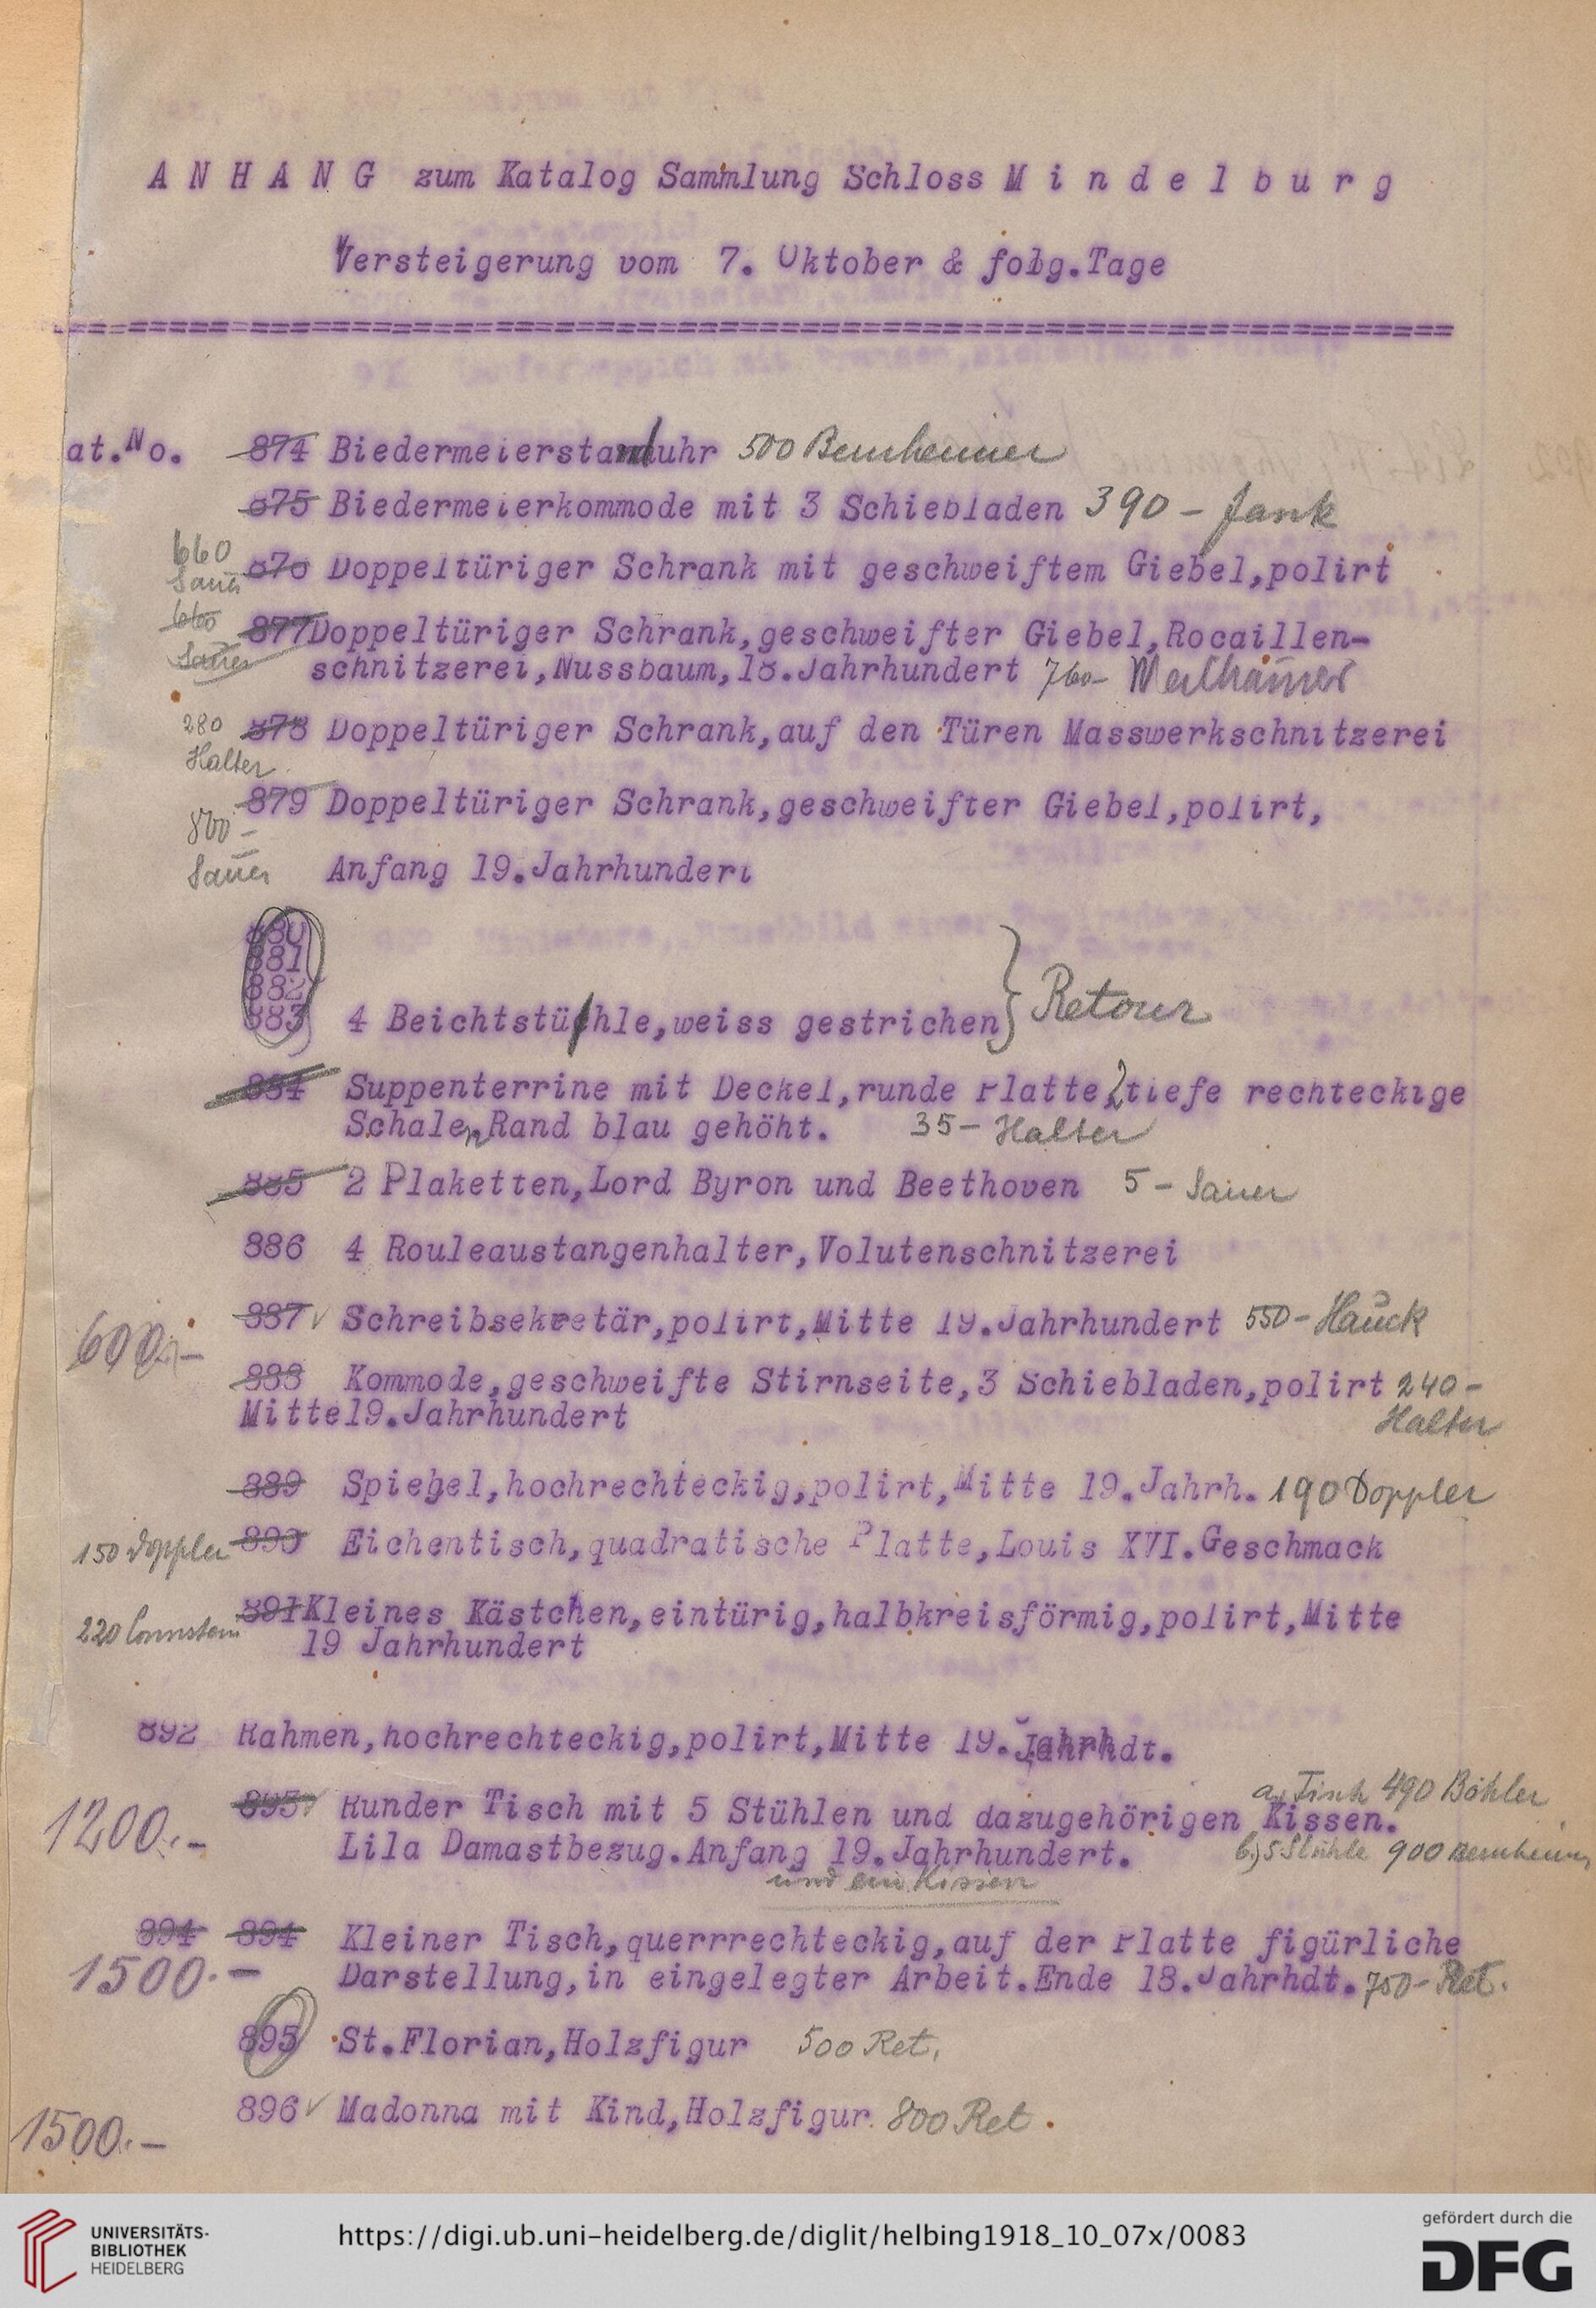 A N H A N G zum Katalog Sammlung Schloss M i n d e l b u r g
Versteigerung vom 7. Oktober & folg.Tage
at.No. 874 Biedermeierstanduhr 500 Bernheimer
875 Biedermeierkommode mit 3 Schiebladen 390 - Jank
660 Sauer 876 Doppeltüriger Schrank mit geschweiftem Giebel,polirt
660 Sauer 877 Doppeltüriger Schrank,geschweifter Giebel,Rocaillen-
schnitzerei,Nussbaum,18.Jahrhundert 760-
280 Halter 878 Doppeltüriger Schrank,auf den Türen Masswerkschnitzerei
879 Doppeltüriger Schrank,geschweifter Giebel,polirt,
800 - Sauer Anfang 19.Jahrhundert
880
881
882
883 4 Beichtstühle,weiss gestrichen } Retour
884 Suppenterrine mit Deckel,runde Platte,2 tiefe rechteckige
Schalen Rand blau gehöht. 35- Halter
885 2 Plaketten,Lord Byron und Beethoven 5 - Sauer
886 4 Rouleaustangenhalter,Volutenschnitzerei
600.- 887 Schreibsekretär,polirt,Mitte 19.Jahrhundert 550- Hauck
888 Kommode,geschweifte Stirnseite,3 Schiebladen,polirt 240-
Mitte19.Jahrhundert Halter
889 Spiegel,hochrechteckig,polirt,Mitte 19.Jahrh. 190 Doppler
150 Doppler 890 Eichentisch,quadratische Platte,Louis XVI.Geschmack
220 891 Kleines Kästchen,eintürig,halbkreisförmig,polirt,Mitte
19 Jahrhundert
892 Rahmen,hochrechteckig,polirt,Mitte 19.Jahrhdt.
a, Tisch 490 Böhler
1200.- 893 Runder Tisch mit 5 Stühlen und dazugehörigen Kissen.
Lila Damastbezug.Anfang 19.Jahrhundert. b,) 5 Stühle 900 Bernheimer
und ein Kissen
894 894 Kleiner Tisch,querrrechteckig,auf der Platte figürliche
1500.- Darstellung,in eingelegter Arbeit.Ende 18.Jahrhdt. 750- Ret.
895 St.Florian,Holzfigur 500 Ret.
896 Madonna mit Kind,Holzfigur 800 Ret.
1500.-
UNIVERSITÄTS-
BIBLIOTHEK
HEIDELBERG
https://digi.ub.uni-heidelberg.de/diglit/helbing1918_10_07x/0083
gefördert durch die
DFG